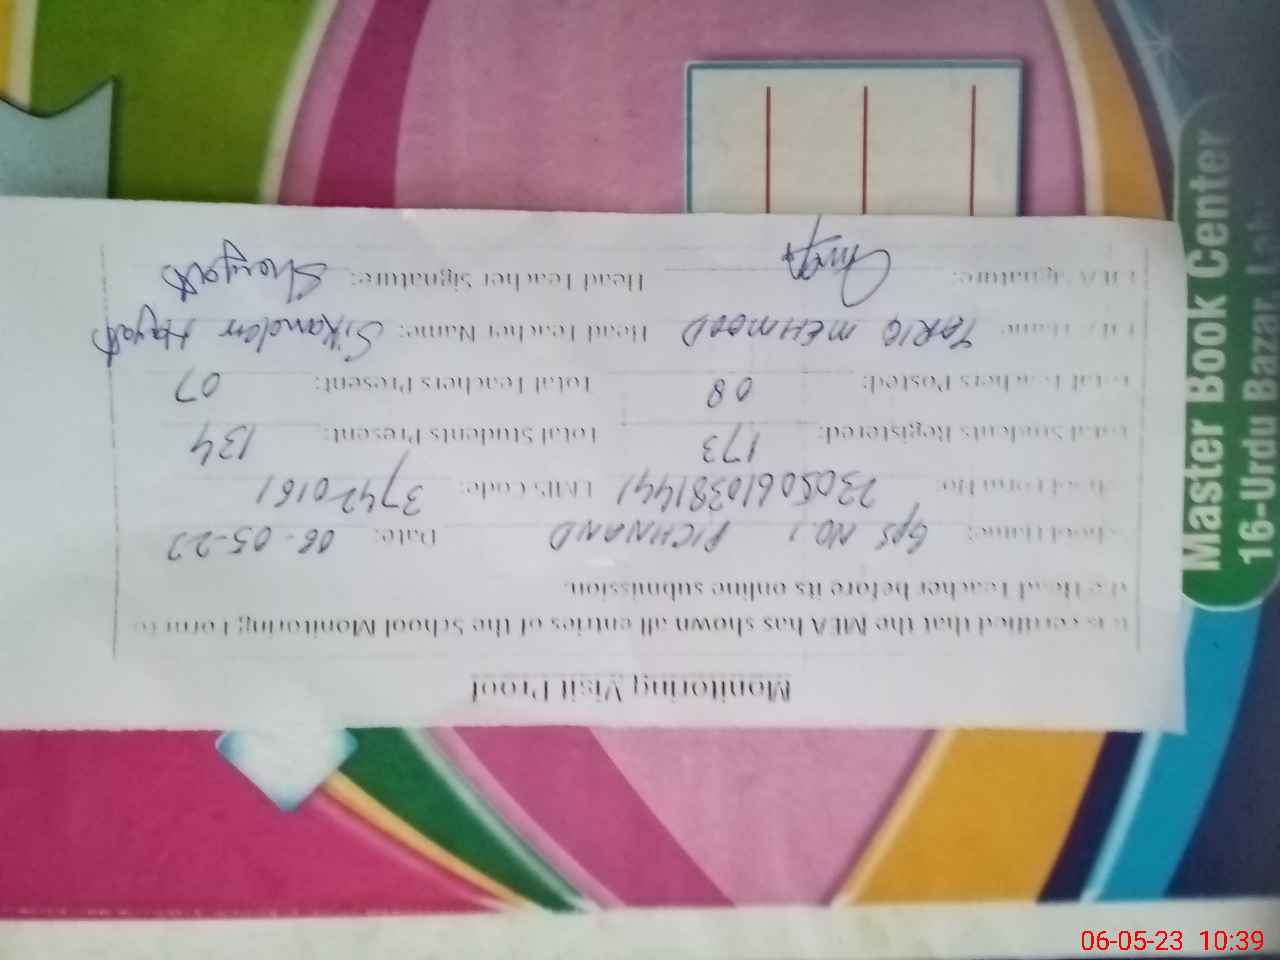 Monitoring Visit Proof
It is certified that the MEA has shown all entries of the School Monitoring Form to
the Head Teacher before its online submission.
School Name: GPS NO.1 PICHNAND Date: 06-05-23
School Form No: 23050610381441 EMIS Code: 37420161
Total Students Registered: 173 Total Students Present: 134
Total Teachers Posted: 08 Total Teachers Present: 07
MEA Name: TARIQ MEHMOOD Head Teacher Name: Sikander Hayat
MEA Signature: Head Teacher Signature: Shayat
Master Book Center
16-Urdu Bazar
06-05-23 10:39